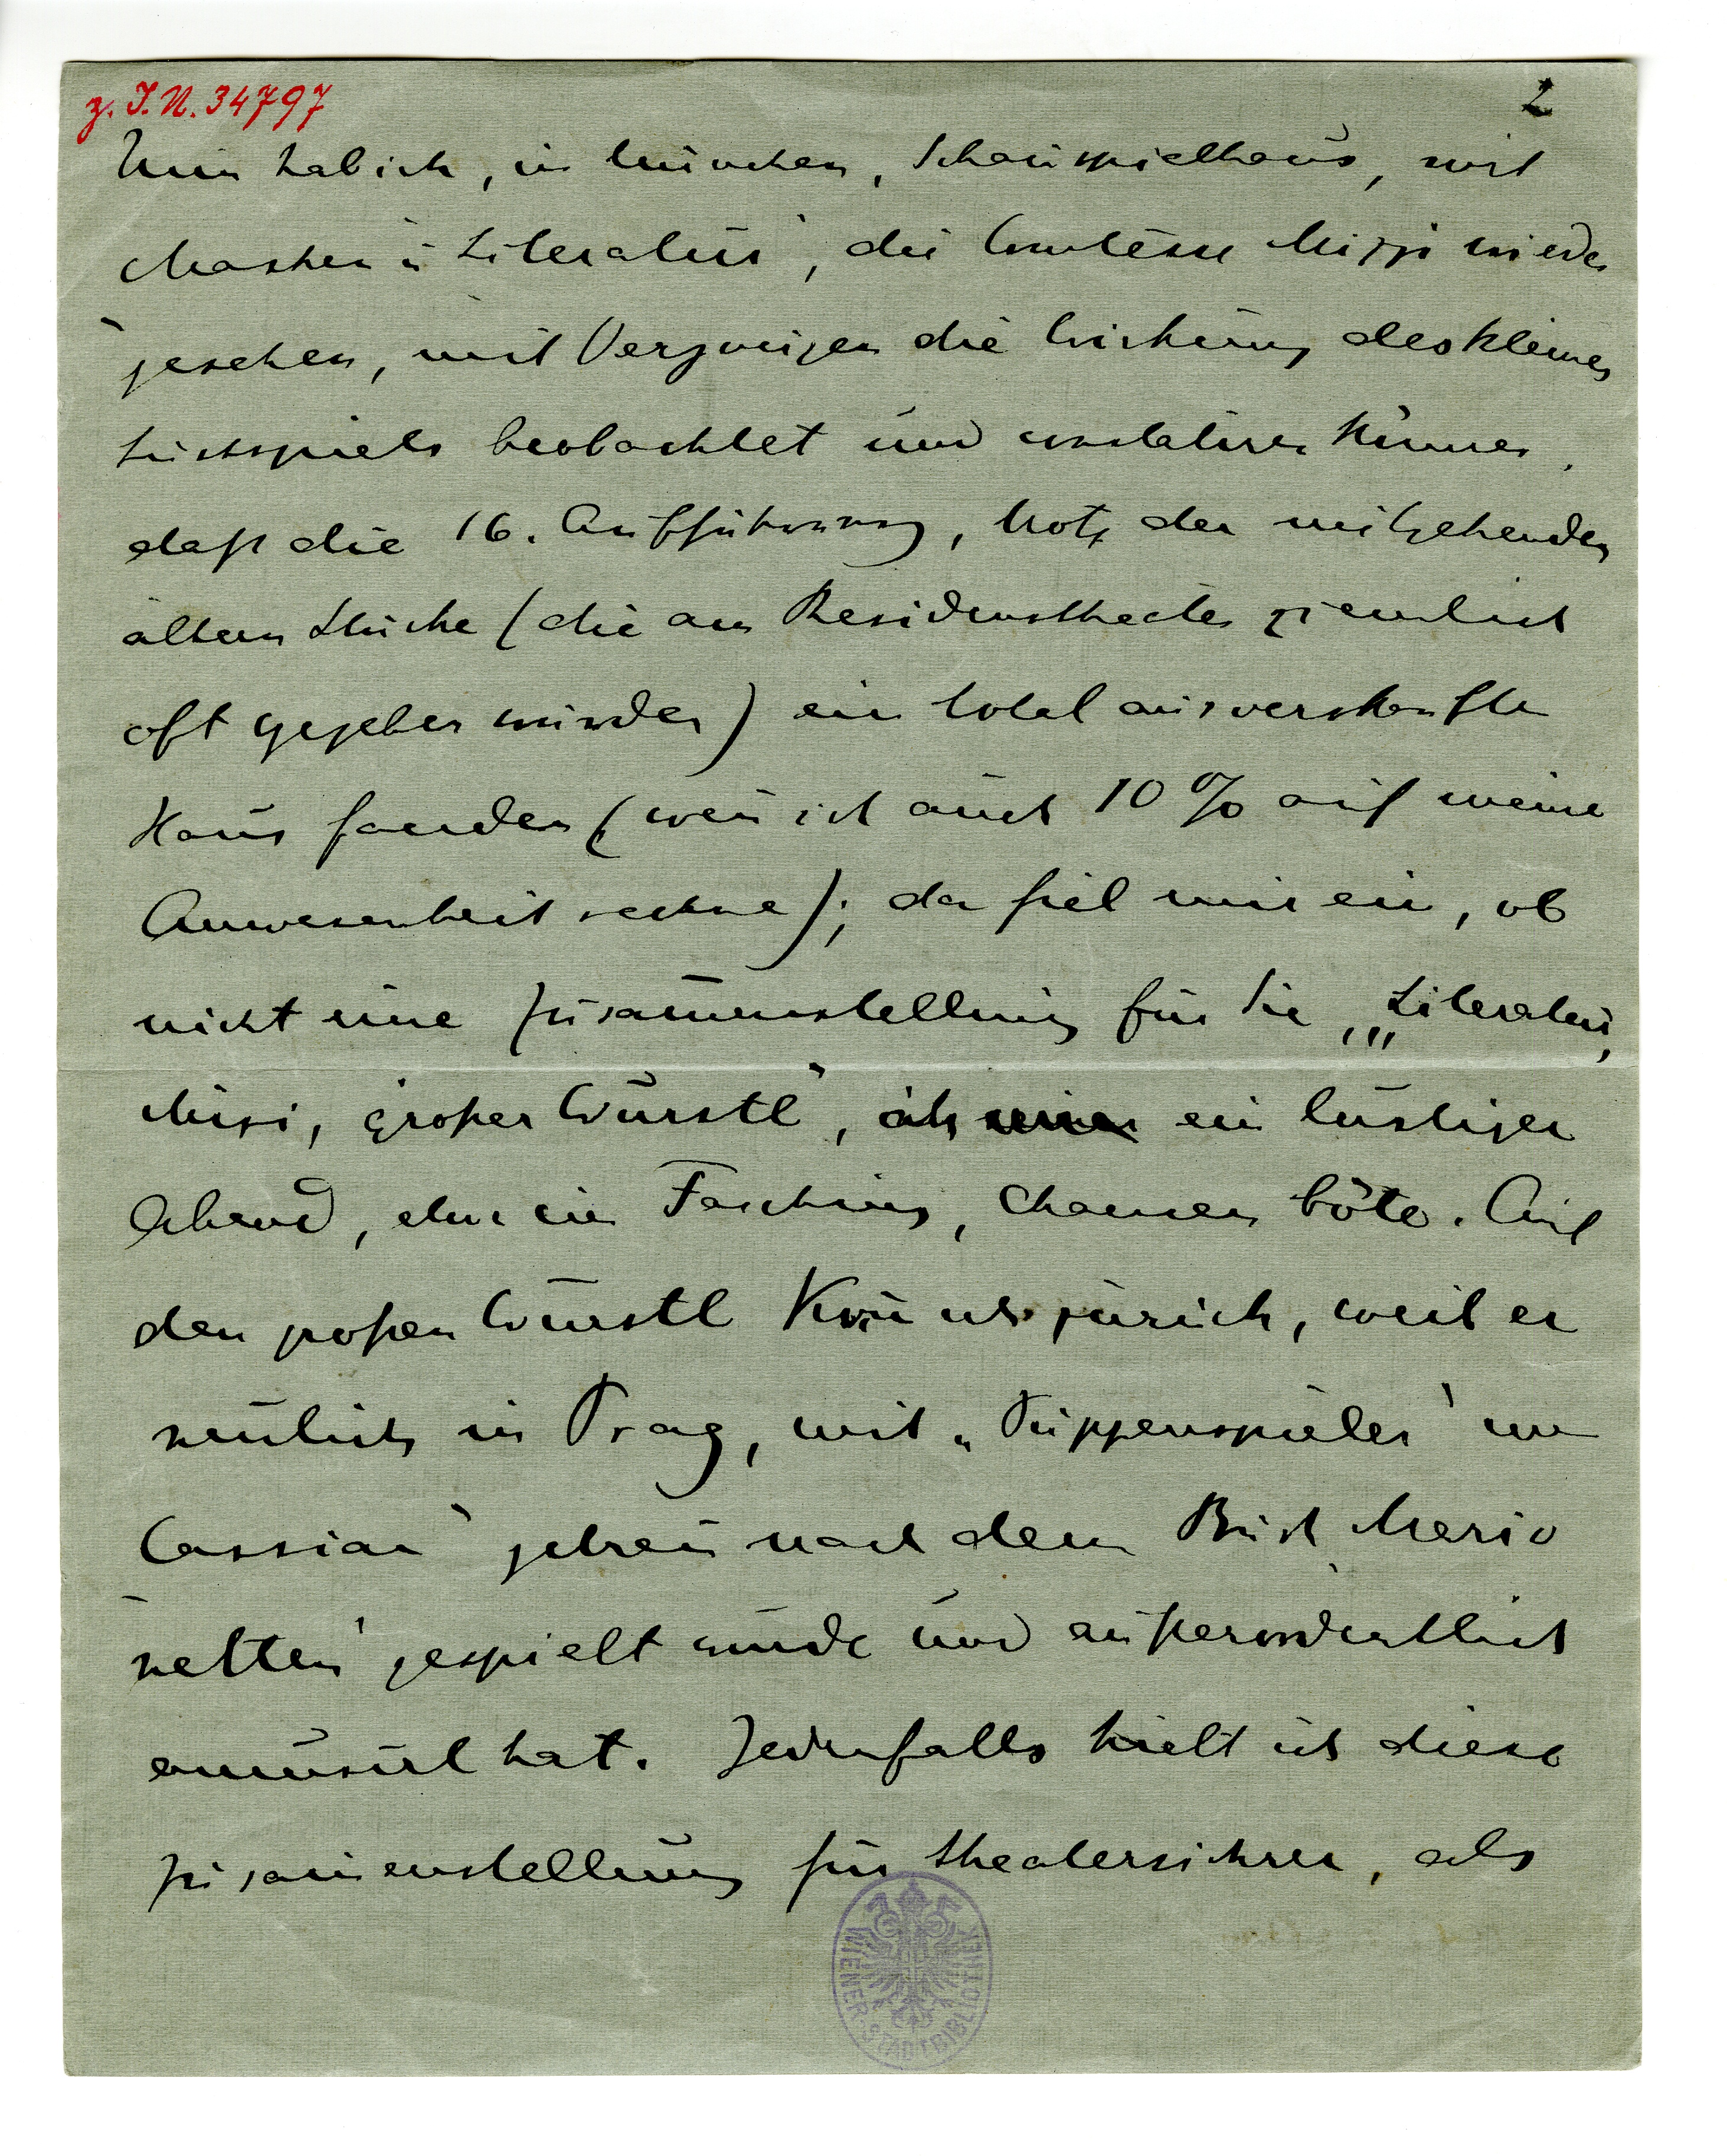 z. I.N. 34797
2
Nun hab ich, in München, Schauspielhaus, mit
Masken u Literatur, die Comtesse Mizzi wieder
gesehen, mit Vergnügen die Wirkung des kleinen
Lustspiels beobachtet und constatiren können,
daß die 16. Aufführung, trotz der mitgehenden
ältern Stücke (die am Residenztheater ziemlich
oft gegeben wurden) ein total ausverkauftes
Haus fanden (wenn ich auch 10 % auf meine
Anwesenheit rechne); da fiel mir ein, ob
nicht eine Zusammenstellung für Sie „Literatur,
Mizi, großer Wurstl", als ein lustiger
Abend, etwa im Fasching, Chancen böte. Auf
den großen Wurstl kom̄ ich zurück, weil er
neulich in Prag, mit „Puppenspieler" u
Cassian" genau nach dem Buch Mario
netten" gespielt wurde und außerordentlich
amüsirt hat. Jedenfalls hielt ich diese
Zusam̄enstellung für theatersichrer, als
WIENER STADTBIBLIOTHEK